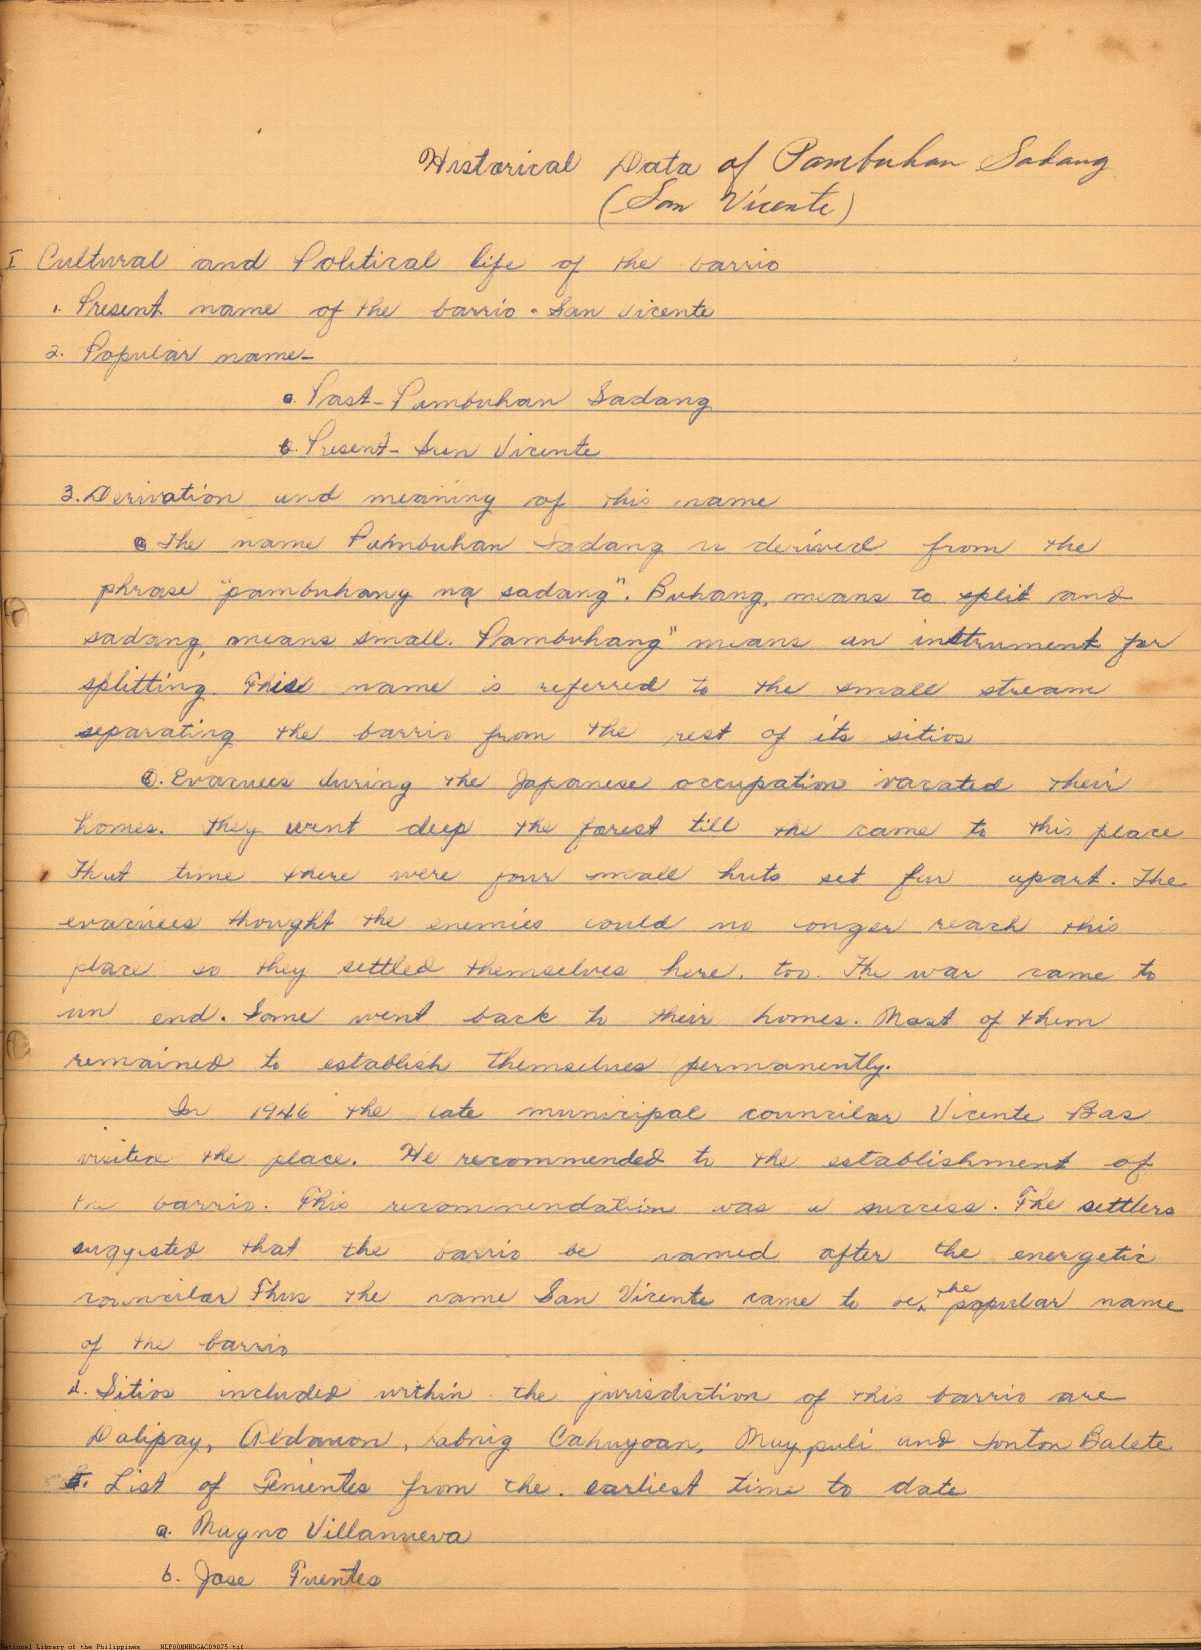 Historical Data of Pambuhan Sadang
(San Vicente)
I Cultural and Political life of the barrio
1. Present name of the barrio - San Vicente
2. Popular name-
a. Past - Pambuhan Sadang
b. Present - San Vicente
3. Derivation and meaning of this name
a The name Pambuhan Sadang is derived from the
phrase "pambuhang na sadang". Buhang, means to split and
sadang, means small. Pambuhang" means an instrument for
splitting. This name is referred to the small stream
separating the barrio from the rest of its sitios
Evacuees during the Japanese occupation vacated their
homes. They went deep the forest till the came to this place
That time there were four small huts set far apart. The
evacuees thought the enemies could no longer reach this
place so they settled themselves here, too. The war came to
an end. Some went back to their homes. Most of them
remained to establish themselves permanently.
In 1946 the late municipal councilor Vicente Bas
visited the place. He recommended to the establishment of
the barrio. This recommendation was a success. The settlers
suggested that the barrio be named after the energetic
councilor Thus the name San Vicente came to be the popular name
of the barrio
4. Sitios included within the jurisdiction of this barrio are
Dalipay, Cahuyoan, and Balete
List of Tenientes from the. earliest time to date
a. Magno Villanueva
b. Jose Fuentes
National Library of the Philippines